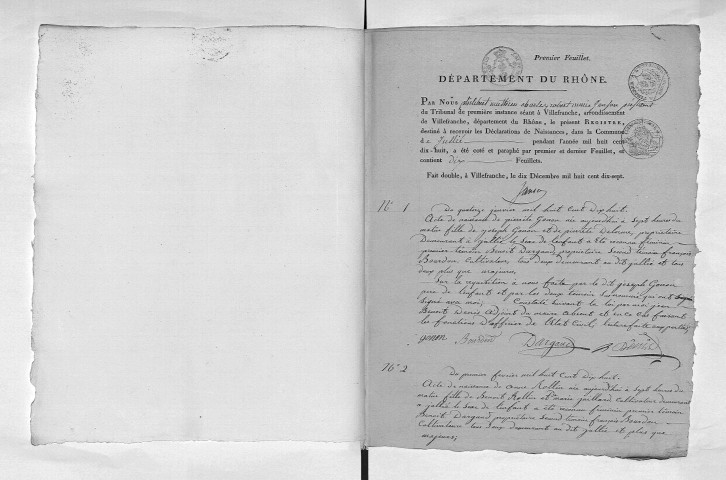 Premier Feuillet.
DÉPARTEMENT DU RHÔNE.
PAR NOUS philibert mathieu charles président
du Tribunal de première instance séant à Villefranche, arrondissement
de Villefranche, département du Rhône, le présent REGISTRE,
destiné à recevoir les Déclarations de Naissances, dans la Commune
de Jullié pendant l'année mil huit cent
dix-huit, a été coté et paraphé par premier et dernier Feuillet, et
contient dix Feuillets.
Fait double, à Villefranche, le dix Décembre mil huit cent dix-sept.
N° 1
Du quatorze janvier mil huit Cent Dix huit.
Acte de naissance de pierrete Gonon née aujourdhui a sept heures du
matin fille de joseph Gonon et de pierrete Delorme, propriétaire
Demeurant a jullié le sexe de lenfant a été reconnu féminin
premier témoin Benoit Dargaud, propriétaire Second témoin françois
Bourdon Cultivateur, tous deux demeurant au dit jullié et tous
deux plus que majeurs
Sur la requisition a nous faite par le dit joseph Gonon
pere de lenfant et par les deux témoin qui ont
Signé avec moi; Constaté suivant la loi par moi
Benoit Adjoint du maire absent et en ce cas faisant
les fonctions D'officier de l'Etat Civil,
gonon Bourdon Dargaud
N° 2
Du premier fevrier mil huit Cent Dix huit.
Acte de naissance de née aujourdhui a sept heures du
matin fille de Benoit Rollin et marie Cultivateur demeurant
a jullié le sexe de lenfant a été reconnu féminin premier témoin
Benoit Dargaud propriétaire Second témoin françois Bourdon
Cultivateur tous deux demeurants au dit jullié et plus que
majeurs;